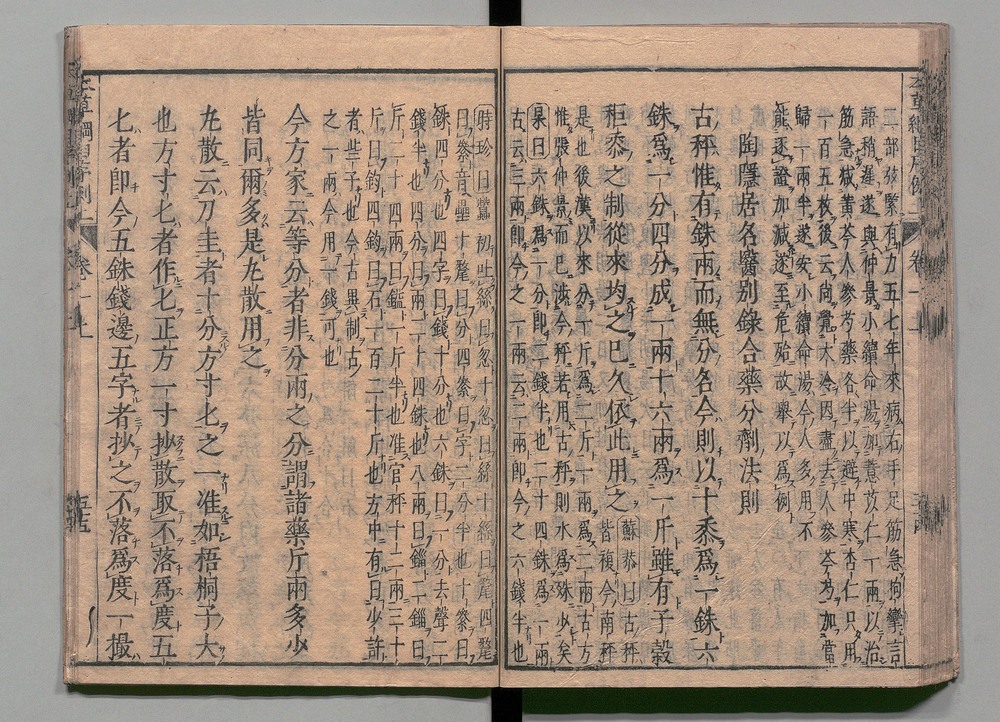 二部發繁有力五七年來病右手足筋急拘攣言
語稍遲遂與仲景小續命湯加薏苡仁一兩以治
筋急減黃芩人參芍藥各半以避中寒杏仁只用
一百五枚後云尚覺大冷因盡去人參芩芍加當
歸一兩半遂安小續命湯今人多用不
能逐證加減遂至危殆故舉以爲例
陶隱居名醫別錄合藥分劑法則
古秤惟有銖兩而無分名今則以十黍爲一銖六
銖爲一分四分成一兩十六兩爲一斤雖有子穀
秬黍之制從來均之已久依此用之 蘇恭曰古秤皆複今南秤
是也後漢以來分一斤爲二斤一兩爲二兩古方
惟張仲景而已涉今秤若用古秤則水爲殊少矣
杲曰六銖爲一分即二錢半也二十四銖爲一兩
古云三兩即今之一兩云二兩即今之六錢半也
時珍曰蠶初吐絲曰忽十忽曰絲十絲曰氂四氂
曰絫音壘十氂曰分四絫曰字二分半也十絫曰
銖四分也四字曰錢十分也六銖曰一分去聲二
錢半也四分曰兩二十四銖也八兩曰錙二錙曰
斤二十四兩曰鎰一斤半也准官秤十二兩三十
斤曰鈞四鈞曰石一百二十斤也方中有曰少許
者些子也今古異制古
之一兩今用一錢可也
今方家云等分者非分兩之分謂諸藥斤兩多少
皆同爾多是丸散用之
丸散云刀圭者十分方寸匕之一准如梧桐子大
也方寸匕者作匕正方一寸抄散取不落爲度五
匕者即今五銖錢邊五字者抄之不落爲度一撮